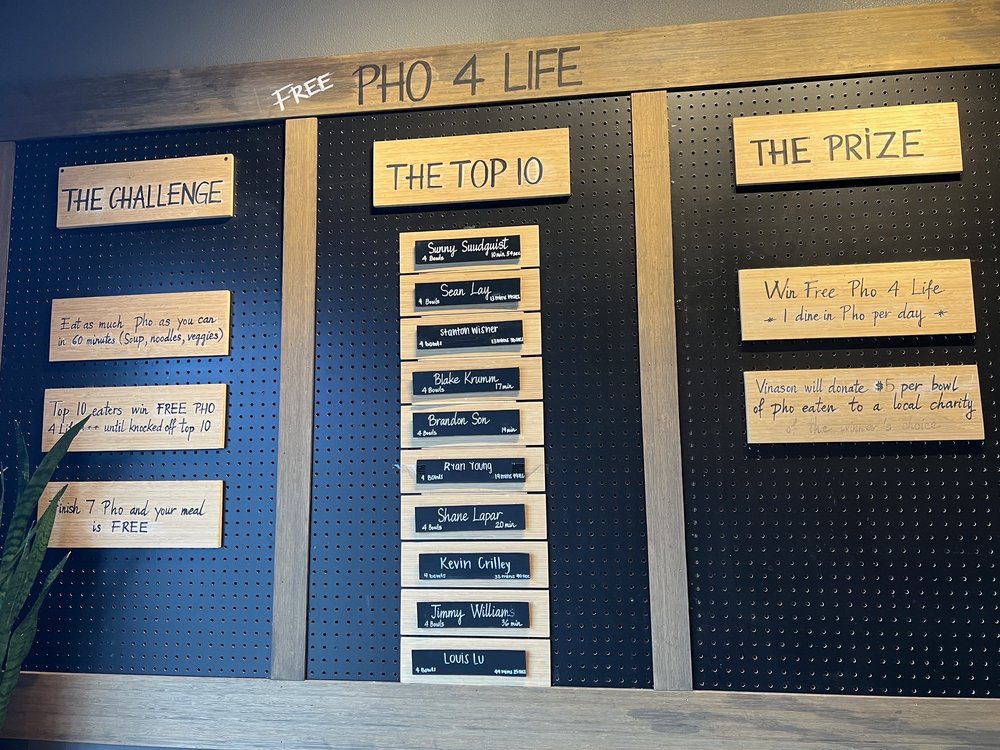 FREE PHO 4 LIFE
THE CHALLENGE
Eat as much Pho as you can
in 60 minutes (Soup, noodles, veggies)
Top 10 eaters win FREE PHO
until knocked off top 10
Finish 7 Pho and your meal
is FREE
THE TOP 10
Sunny Suudquist
4 Bowls 10min 54sec
Sean Lay
4 Bowls
Stanton Wisner
4 bowls
Blake Krumm
4 Bowls 17min
Brandon Son
4 Bowls 19min
Ryan Young
4 Bowls
Shane Lapar
4 Bowls 20min
Kevin Crilley
4 bowls
Jimmy Williams
4 Bowls 36 min
Louis Lu
4 Bowls
THE PRIZE
Win Free Pho 4 Life
* 1 dine in Pho per day *
Vinason will donate $5 per bowl
of pho eaten to a local charity
of the winner's choice